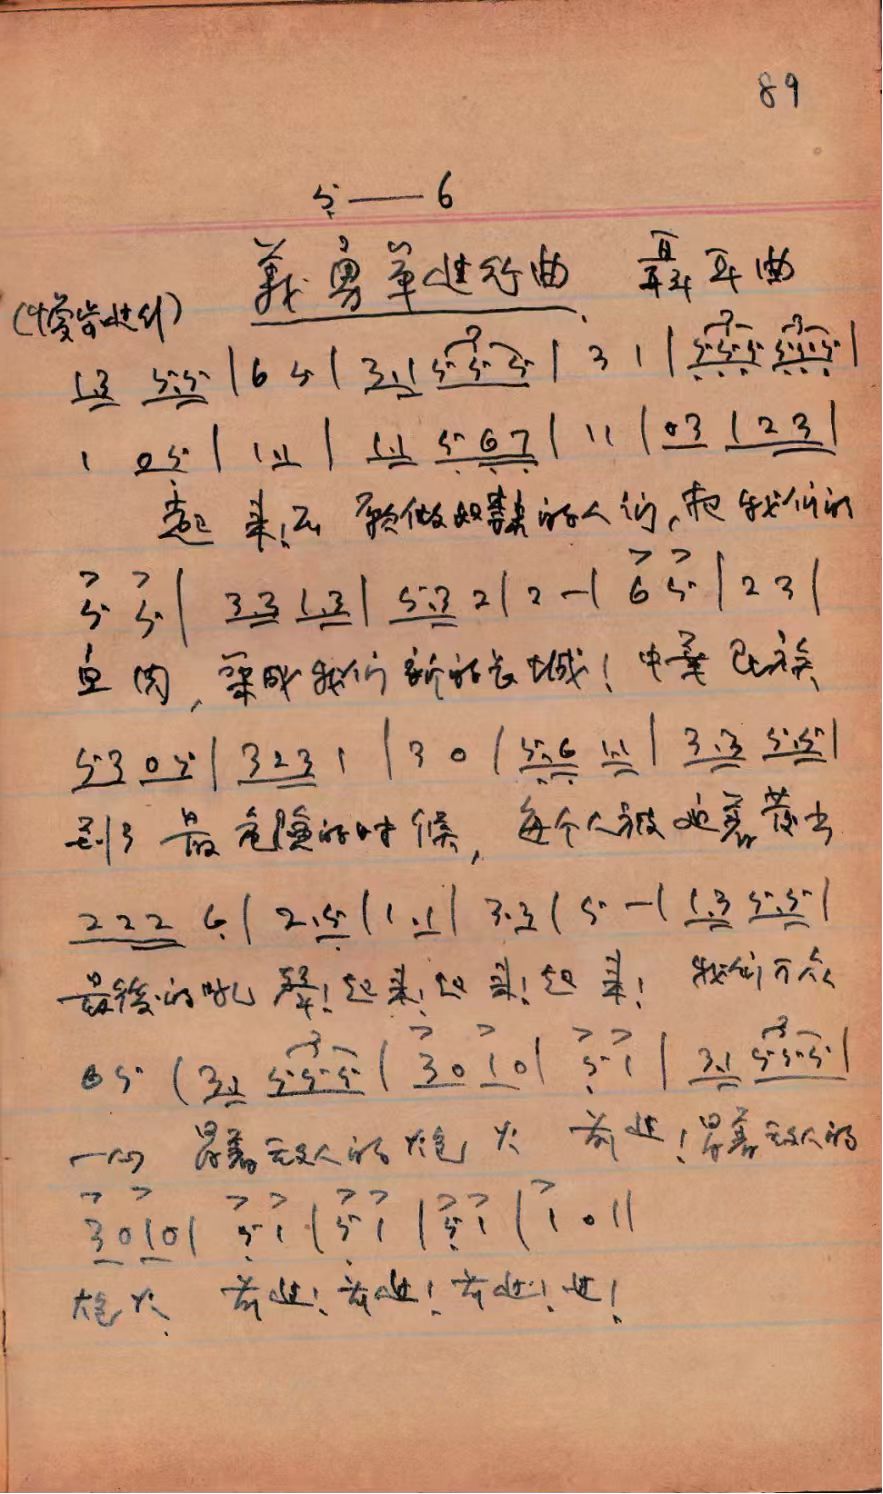 89
5——6
義勇軍进行曲 聶耳曲
1.3 5.5 | 6 5 | 3.1 5 5 5 | 3 1 | 5 5 5 5 5 5 |
1 0 5 | 1 1 | 1.1 5 6 7 | 1 1 | 0 3 1 2 3 |
起来!不願做奴隸的人们,把我们的
> > > >
5 5 | 3.3 1.3 | 5.3 2 | 2 - | 6 5 | 2 3 |
血肉,築成我们新的长城!中華民族
5 3 0 5 | 3 2 3 1 | 3 0 | 5.6 1.1 | 3.3 5.5 |
到了最危險的时候,每个人被迫着发出
2 2 2 6 | 2.5 | 1.1 | 3.3 | 5 - | 1.3 5.5 |
最後的吼聲!起来!起来!起来! 我们万众
6 5 | 3.1 5 5 5 | 3 0 1 0 | 5 1 | 3.1 5 5 5 |
一心 冒着敌人的炮火 前进!冒着敌人的
> > > > > > > > >
3 0 1 0 | 5 1 | 5 1 | 5 1 | 1 0 ||
炮火 前进!前进!前进!进!